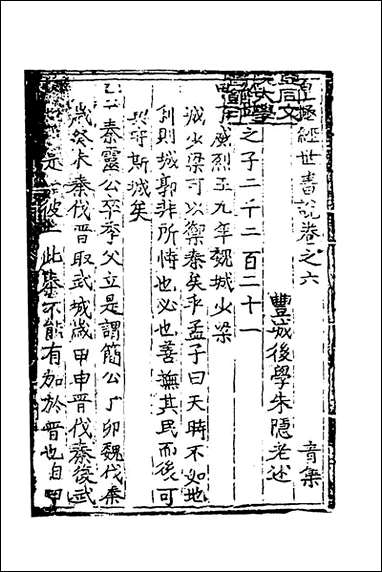 皇極經世書說卷之六 音集
豐城後學朱隱老述
之子二千二百二十一
威烈王九年魏城少梁
城少梁可以禦秦矣乎孟子曰天時不如地
利則城郭非所恃也必也善撫其民而後可
與守斯城矣
秦靈公卒季父立是謂簡公丁卯魏伐秦
歲癸未秦伐晉取武城歲甲申晉伐秦後武
彼一此蓋不能有加於晉也自